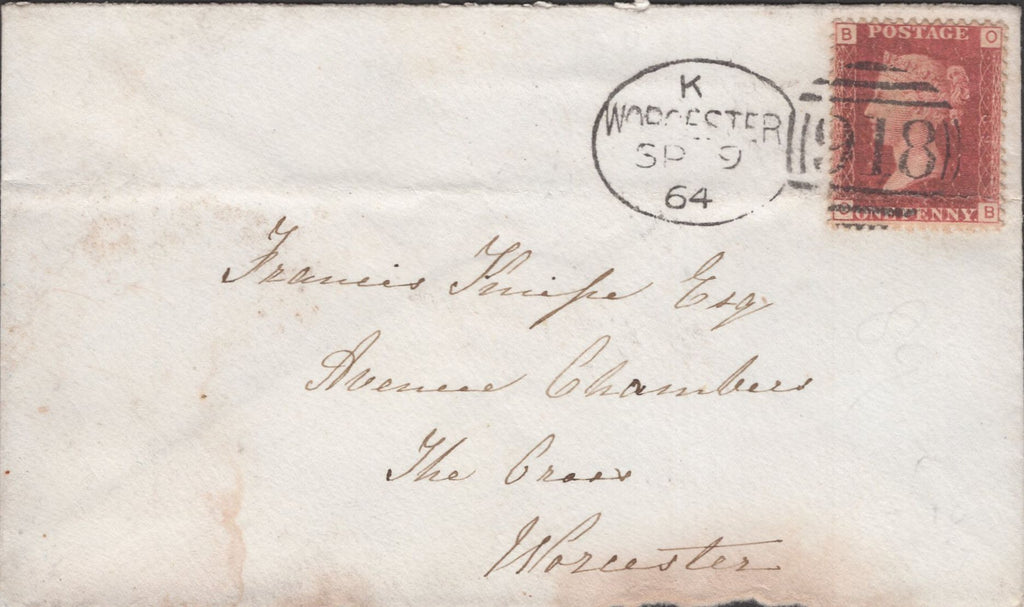 B POSTAGE O
K
WORCESTER
SP 9
64
918
O ONE PENNY B
Francis Knipe Esq
Avenue Chambers
The Cross
Worcester